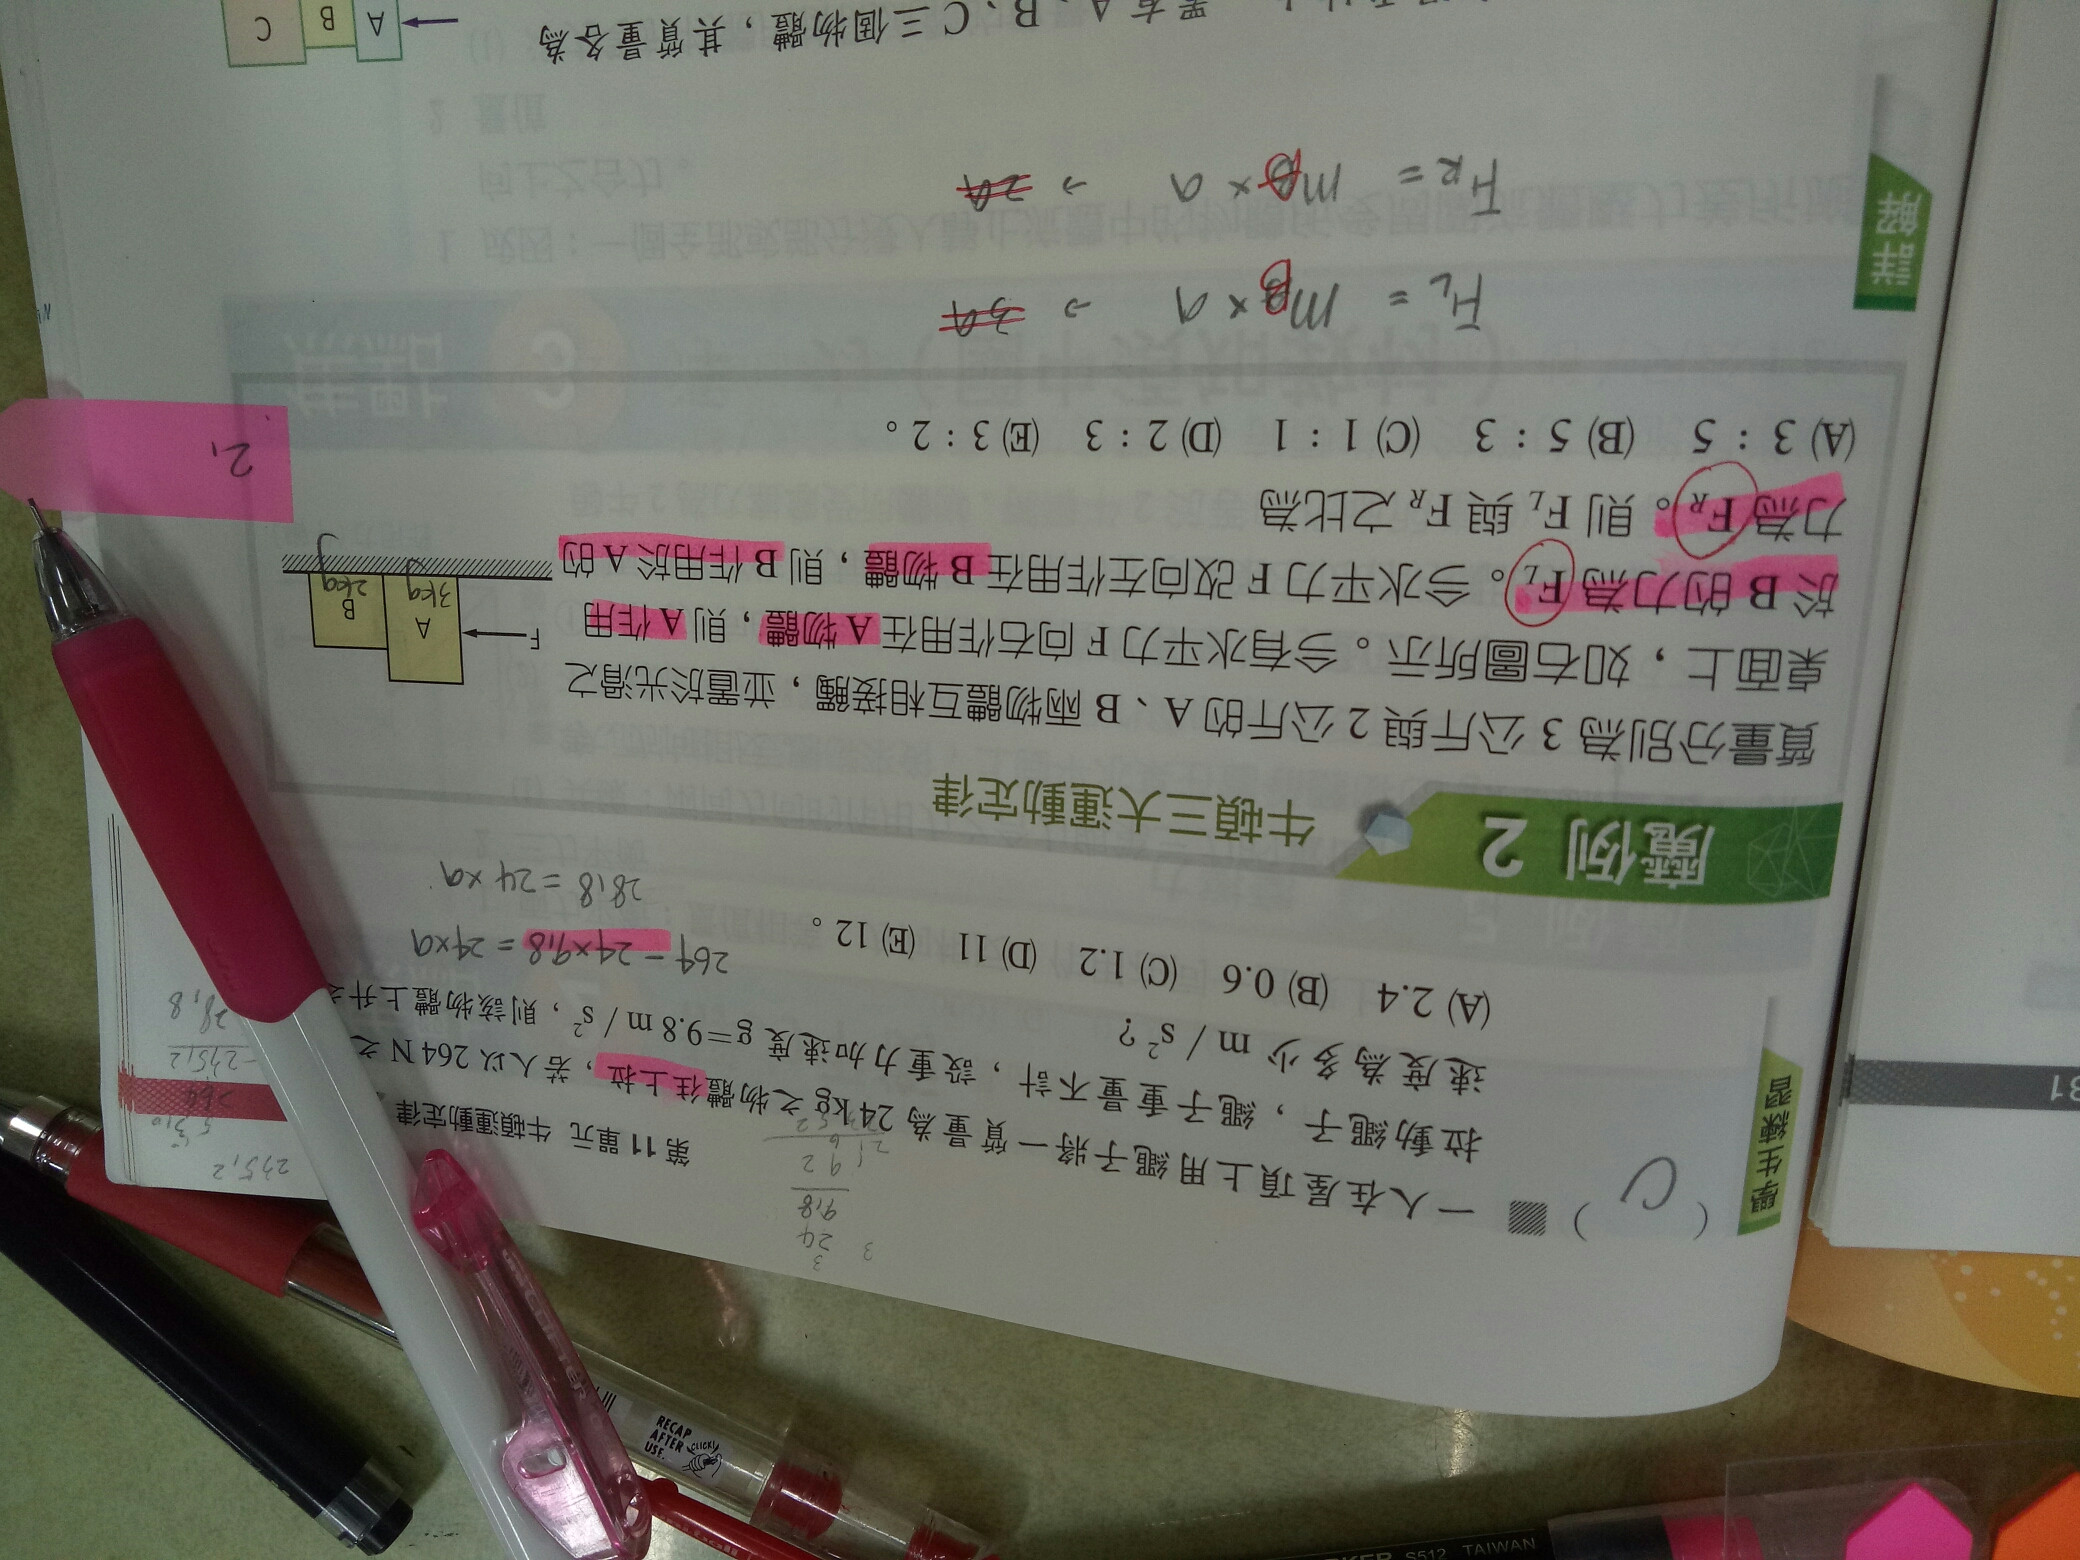 第 11 單元 牛頓運動定律
學生練習
( C ) 一人在屋頂上用繩子將一質量為 24 kg 之物體往上拉，若人以 264 N 之
拉動繩子，繩子重量不計，設重力加速度 g=9.8 m / s²，則該物體上升之
速度為多少 m / s²？
(A) 2.4 (B) 0.6 (C) 1.2 (D) 11 (E) 12。
264 - 24×9.8 = 24×a
28.8 = 24×a
魔例 2 牛頓三大運動定律
質量分別為 3 公斤與 2 公斤的 A、B 兩物體互相接觸，並置於光滑之
桌面上，如右圖所示。今有水平力 F 向右作用在 A 物體，則 A 作用
於 B 的力為 F_L。今水平力 F 改向左作用在 B 物體，則 B 作用於 A 的
力為 F_R。則 F_L 與 F_R 之比為
(A) 3：5 (B) 5：3 (C) 1：1 (D) 2：3 (E) 3：2。
F
A
3kg
B
2kg
詳解
F_L = m_B × a → 3a
F_R = m_A × a → 2a
置有 A、B、C 三個物體，其質量各為
A
B
C
24
9.8
275.2
28.8
RECAP
AFTER
USE.
CLICK!
S512 TAIWAN